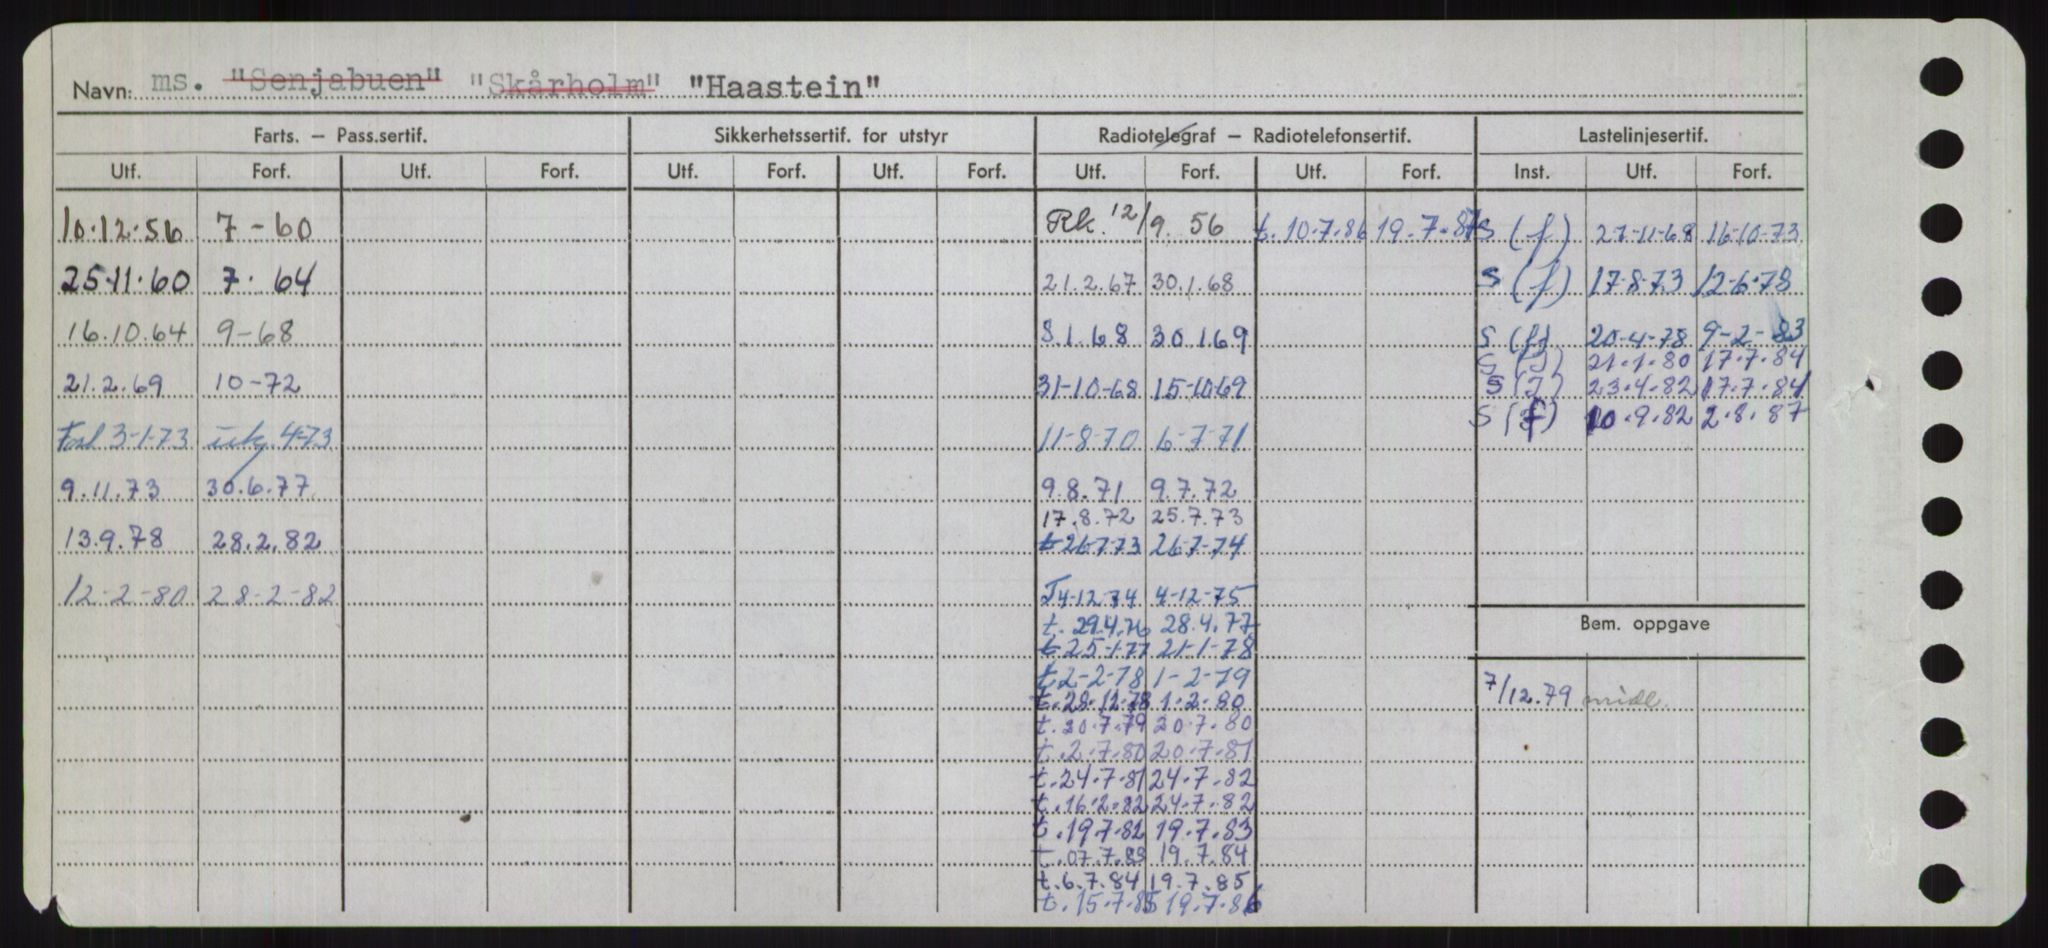 Navn: ms. "Senjabuen" "Skårholm" "Haastein"
Farts. — Pass.sertif. Sikkerhetssertif. for utstyr Radiotelegraf — Radiotelefonsertif. Lastelinjesertif.
Utf. Forf. Utf. Forf. Utf. Forf. Utf. Forf. Utf. Forf. Utf. Forf. Inst. Utf. Forf.
10.12.56 7-60 Rk. 12/9. 56 t. 10.7.86 19.7.87 S (f) 27-11-68 16-10-73
25.11.60 7. 64 21.2.67 30.1.68 S (f) 17-8-73 12-6-78
16.10.64 9-68 8.1.68 30.1.69 S (f) 20-4-78 9-2-83
S (f) 21.1.80 17.7.84
21.2.69 10-72 31-10-68 15-10-69 S (f) 23.4.82 17.7.84
S (f) 10.9.82 2.8.87
3-1-73 4-73 11-8-70 6-7-71
9.11.73 30.6.77 9.8.71 9.7.72
17.8.72 25.7.73
13.9.78 28.2.82 t 26-7-73 26-7-74
12-2-80 28-2-82 T 4-12-74 4-12-75
t. 29.4.76 28.4.77 Bem. oppgave
t 25-1-77 21-1-78
t 2-2-78 1-2-79
t. 28.12.78 1.2.80 7/12.79 midl.
t. 20.7.79 20.7.80
t. 2.7.80 20.7.81
t. 24.7.81 24.7.82
t. 16.2.82 24.7.82
t. 19.7.82 19.7.83
t. 07.7.83 19.7.84
t. 6.7.84 19.7.85
t. 15.7.85 19.7.86